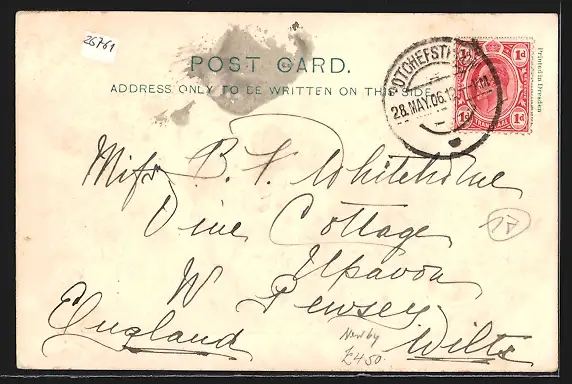 26761
POST CARD.
ADDRESS ONLY TO BE WRITTEN ON THIS SIDE
POTCHEFSTROOM
28.MAY.06
1d 1d
1d 1d
TRANSVAAL
Printed in Dresden
Miss B. F. Whitehorne
Vine Cottage
17
Upavon
W Pewsey
England Wilts
£450